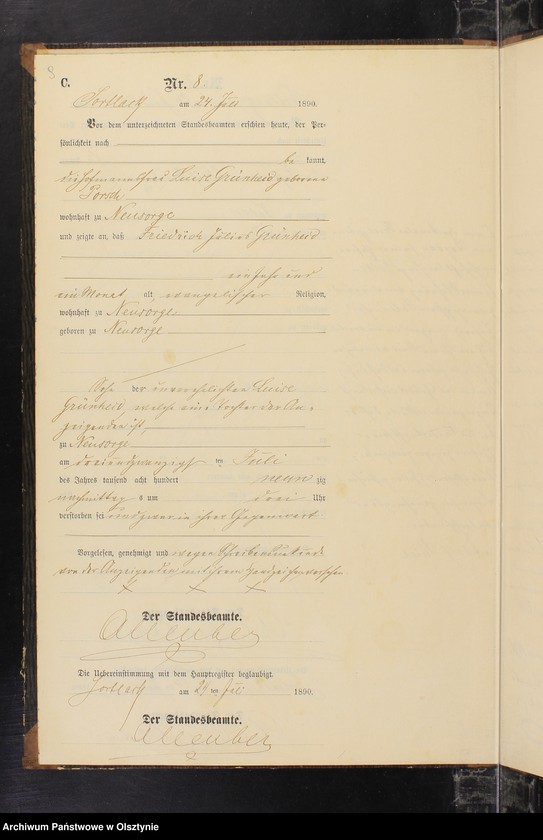 8
C.
Nr. 8
Sortlack am 24. Juli 1890.
Vor dem unterzeichneten Standesbeamten erschien heute, der Per-
sönlichkeit nach
be kannt,
die Hofmannsfrau Luise Grünheid geborene
Porsch
wohnhaft zu Neusorge
und zeigte an, daß Friedrich Julius Grünheid
ein Jahr und
ein Monat alt, evangelischer Religion,
wohnhaft zu Neusorge
geboren zu Neusorge
Sohn der unverehelichten Luise
Grünheid, welche eine Tochter der An-
zeigenden ist,
zu Neusorge
am dreiundzwanzigst en Juli
des Jahres tausend acht hundert neun zig
nachmittag s um drei Uhr
verstorben sei und zwar in ihrer Gegenwart
Vorgelesen, genehmigt und wegen
von der Anzeigenden mit ihrem Handzeichen versehen
x x x
Der Standesbeamte.
Die Uebereinstimmung mit dem Hauptregister beglaubigt.
Sortlack am Juli 1890.
Der Standesbeamte.
Archiwum Państwowe w Olsztynie